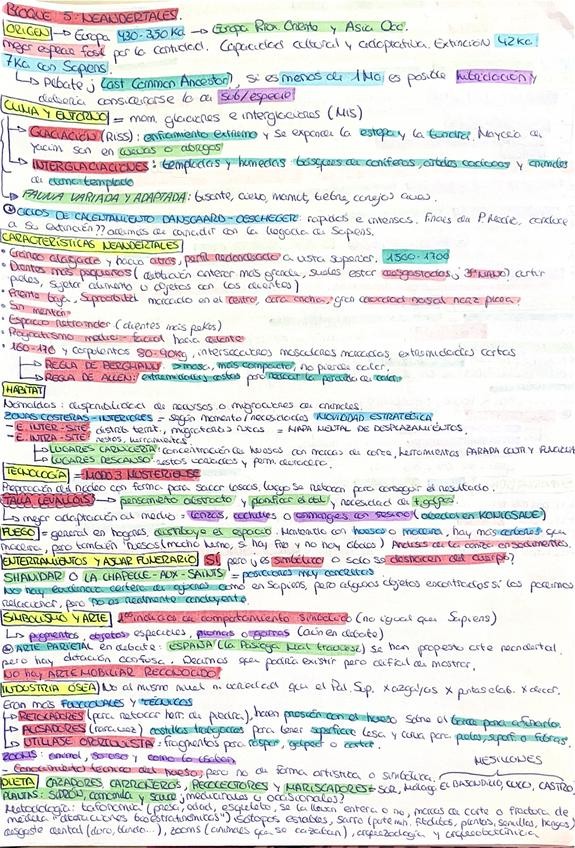 BLOQUE 5: NEANDERTALES.
ORIGEN → Europa 430-350 Ka → Europa, Prox Oriente y Asia Occ.
mejor especie fosil por la cantidad. Capacidad cultural y adaptativa. Extinción 42 Ka
7Ka con Sapiens.
↳ Debate: Last Common Ancestor, si es menos de 1 Ma es posible hibridación y
debería considerarse lo de sub/especie
CLIMA Y ENTORNO = mom. glaciares e interglaciares (MIS)
GLACIACIÓN (RISS): enfriamiento extremo y se expande la estepa y la tundra. Mayoría de
yacim son en cuevas o abrigos
INTERGLACIACIONES: templadas y humedas: bosques de coníferas, y animales
de clima templado
FAUNA VARIADA Y ADAPTADA: bisonte, ciervo, mamut, liebre, conejos aves.
CICLOS DE CALENTAMIENTO DANSGAARD-OESCHEGER: rapidos e intensos. Finales de P. Medio, conduce
a su extinción?? además de coincidir con la llegada de Sapiens.
CARACTERÍSTICAS NEANDERTALES
• Craneo alargado y hacia atras, perfil redondeado a vista superior. 1500-1700
• Dientes mas pequeños (dentición anterior mas grande, suelen estar desgastados, ) curtir
pieles, sujetar alimento u objetos con los dientes)
• Frente baja, supraorbital marcado en el centro, cara ancha, gran cavidad nasal nariz
• Sin mentón
• Espacio retromolar (dientes más peños)
• Prognatismo medio-facial hacia delante
• 160-170 y corpulentos 80-90kg, inserciones musculares marcadas, extremidades cortas
↳ REGLA DE BERGMANN > masa, mas compacto, no pierde calor.
↳ REGLA DE ALLEN: extremidades cortas para reducir la perdida de calor.
HABITAT
Nomadas: disponibilidad de recursos o migraciones de animales.
ZONAS COSTERAS-INTERIORES = según momento/necesidades MOVILIDAD ESTRATEGICA
- E. INTER-SITE: distrib territ., migratorias rutas = MAPA MENTAL DE DESPLAZAMIENTOS.
- E. INTRA-SITE: restos, herramientas
↳ LUGARES CARNICERIA: concentración de huesos con marcas de corte, herramientas PARADA CORTA Y FUNCIONAL
↳ LUGARES DESCANSO: restos variados y perm. duradero.
TECNOLOGÍA = MODO 3 MUSTERIENSE
Preparación del núcleo con forma para sacar lascas, luego se retocan para conseguir el resultado.
TALLA LEVALLOIS → pensamiento abstracto y planificar el débil y necesidad de + golpes.
↳ mejor adaptación al medio = lanzas, cuchillos o enmangues con resina (abedul en KONIGSAUE)
FUEGO = general en hogares, distribuye el espacio. Mantenido con huesos o madera, hay mas carbones que
madera, pero también huesos (mucho humo, si hay frio y no hay árboles) Analisis de la ceniza en sedimentos.
ENTERRAMIENTOS Y AJUAR FUNERARIO SI pero ¿es simbólico o solo se deshacen del cuerpo?
SHANIDAR O LA CHAPELLE-AUX-SAINTS = posiciones muy concretas
No hay evidencia certera de ajuares como en Sapiens, pero algunos objetos encontrados si los podríamos
relacionar, pero no es realmente concluyente.
SIMBOLISMO Y ARTE 1os indicios de comportamiento simbólico (no igual que Sapiens)
↳ pigmentos, objetos especiales, plumas o garras (aún en debate)
ARTE PARIETAL en debate: ESPAÑA (la Pasiega, ) se han propuesto arte neandertal
pero hay datación confusa. Decimos que podría existir pero dificil de mostrar.
NO hay ARTE MOBILIAR RECONOCIDO
INDUSTRIA ÓSEA No al mismo nivel ni variedad que el Pal. Sup. x azagayas x puntas elab. x decor.
Eran más FUNCIONALES y TÉCNICOS
↳ RETOCADORES (para retocar herr. de piedra), hacen presión con el hueso sobre el para afinarlo.
↳ ALISADORES (rara vez) costillas trabajadas para tener superficie lisa y curva para pieles, o fibras.
↳ UTILLAJE OPORTUNISTA = fragmentos para raspar, golpear o cortar.
ZOOMS: animal, su uso y como lo
- Conocimiento técnico del hueso, pero no de forma artistica o simbólica.
MESILLONES
DIETA CAZADORES CARROÑEROS, RECOLECTORES Y MARISCADORES = SUR, Malaga EL BAJONDILLO, CASTRO
PLANTAS: SIDRÓN, camomila y sauce ¿medicinales u ocasionales?
Metodología: tafonomía (presa, edad, esqueleto, se la llevan entera o no, marcas de corte o fractura de
medula "") isotopos estables, sarro (, plantas, semillas, hongos)
desgaste dental (duro, blando...), zooms (animales que se cazaban), arqueozoología y arqueobotanica